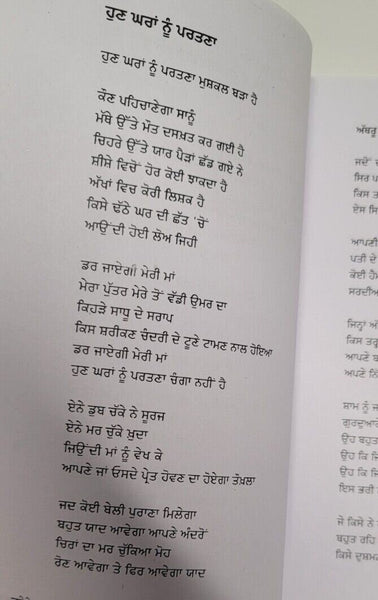 ਹੁਣ ਘਰਾਂ ਨੂੰ ਪਰਤਣਾ
ਹੁਣ ਘਰਾਂ ਨੂੰ ਪਰਤਣਾ ਮੁਸ਼ਕਲ ਬੜਾ ਹੈ
ਕੌਣ ਪਹਿਚਾਣੇਗਾ ਸਾਨੂੰ
ਮੱਥੇ ਉੱਤੇ ਮੌਤ ਦਸਖ਼ਤ ਕਰ ਗਈ ਹੈ
ਚਿਹਰੇ ਉੱਤੇ ਯਾਰ ਪੈੜਾਂ ਛੱਡ ਗਏ ਨੇ
ਸ਼ੀਸ਼ੇ ਵਿਚੋਂ ਹੋਰ ਕੋਈ ਝਾਕਦਾ ਹੈ
ਅੱਖਾਂ ਵਿਚ ਕੋਰੀ ਲਿਸ਼ਕ ਹੈ
ਕਿਸੇ ਢੱਠੇ ਘਰ ਦੀ ਛੱਤ 'ਚੋਂ
ਆਉਂਦੀ ਹੋਈ ਲੋਅ ਜਿਹੀ
ਡਰ ਜਾਏਗੀ ਮੇਰੀ ਮਾਂ
ਮੇਰਾ ਪੁੱਤਰ ਮੇਰੇ ਤੋਂ ਵੱਡੀ ਉਮਰ ਦਾ
ਕਿਹੜੇ ਸਾਧੂ ਦੇ ਸਰਾਪ
ਕਿਸ ਸ਼ਰੀਕਣ ਚੰਦਰੀ ਦੇ ਟੂਣੇ ਟਾਮਣ ਨਾਲ ਹੋਇਆ
ਡਰ ਜਾਏਗੀ ਮੇਰੀ ਮਾਂ
ਹੁਣ ਘਰਾਂ ਨੂੰ ਪਰਤਣਾ ਚੰਗਾ ਨਹੀਂ ਹੈ
ਏਨੇ ਡੁਬ ਚੁੱਕੇ ਨੇ ਸੂਰਜ
ਏਨੇ ਮਰ ਚੁੱਕੇ ਖ਼ੁਦਾ
ਜਿਉਂਦੀ ਮਾਂ ਨੂੰ ਵੇਖ ਕੇ
ਆਪਣੇ ਜਾਂ ਓਸਦੇ ਪ੍ਰੇਤ ਹੋਵਣ ਦਾ ਹੋਏਗਾ ਤੌਖ਼ਲਾ
ਜਦ ਕੋਈ ਬੇਲੀ ਪੁਰਾਣਾ ਮਿਲੇਗਾ
ਬਹੁਤ ਯਾਦ ਆਵੇਗਾ ਆਪਣੇ ਅੰਦਰੋਂ
ਚਿਰਾਂ ਦਾ ਮਰ ਚੁੱਕਿਆ ਮੋਹ
ਰੋਣ ਆਵੇਗਾ ਤੇ ਫਿਰ ਆਵੇਗਾ ਯਾਦ
ਅੱਥਰੂ
ਜਦੋਂ
ਸਿਰ
ਕਿਸ
ਏਸ
ਆਪਣੀ
ਪਤੀ ਦੇ
ਕੋਈ
ਸਰਦੀਆਂ
ਜਿਨ੍ਹਾਂ
ਕਿਸ ਤਰ੍ਹਾਂ
ਆਪਣੇ
ਆਪਣੇ
ਸ਼ਾਮ ਨੂੰ
ਗੁਰਦੁਆਰੇ
ਉਹ ਬਹੁਤ
ਉਹ ਕਿ
ਉਹ ਕਿ
ਇਸ ਭਰੀ
ਜੇ ਕਿਸੇ ਨੇ
ਬਹੁਤ ਰਹਿ
ਕਿਸੇ ਦੁਸ਼ਮਣ